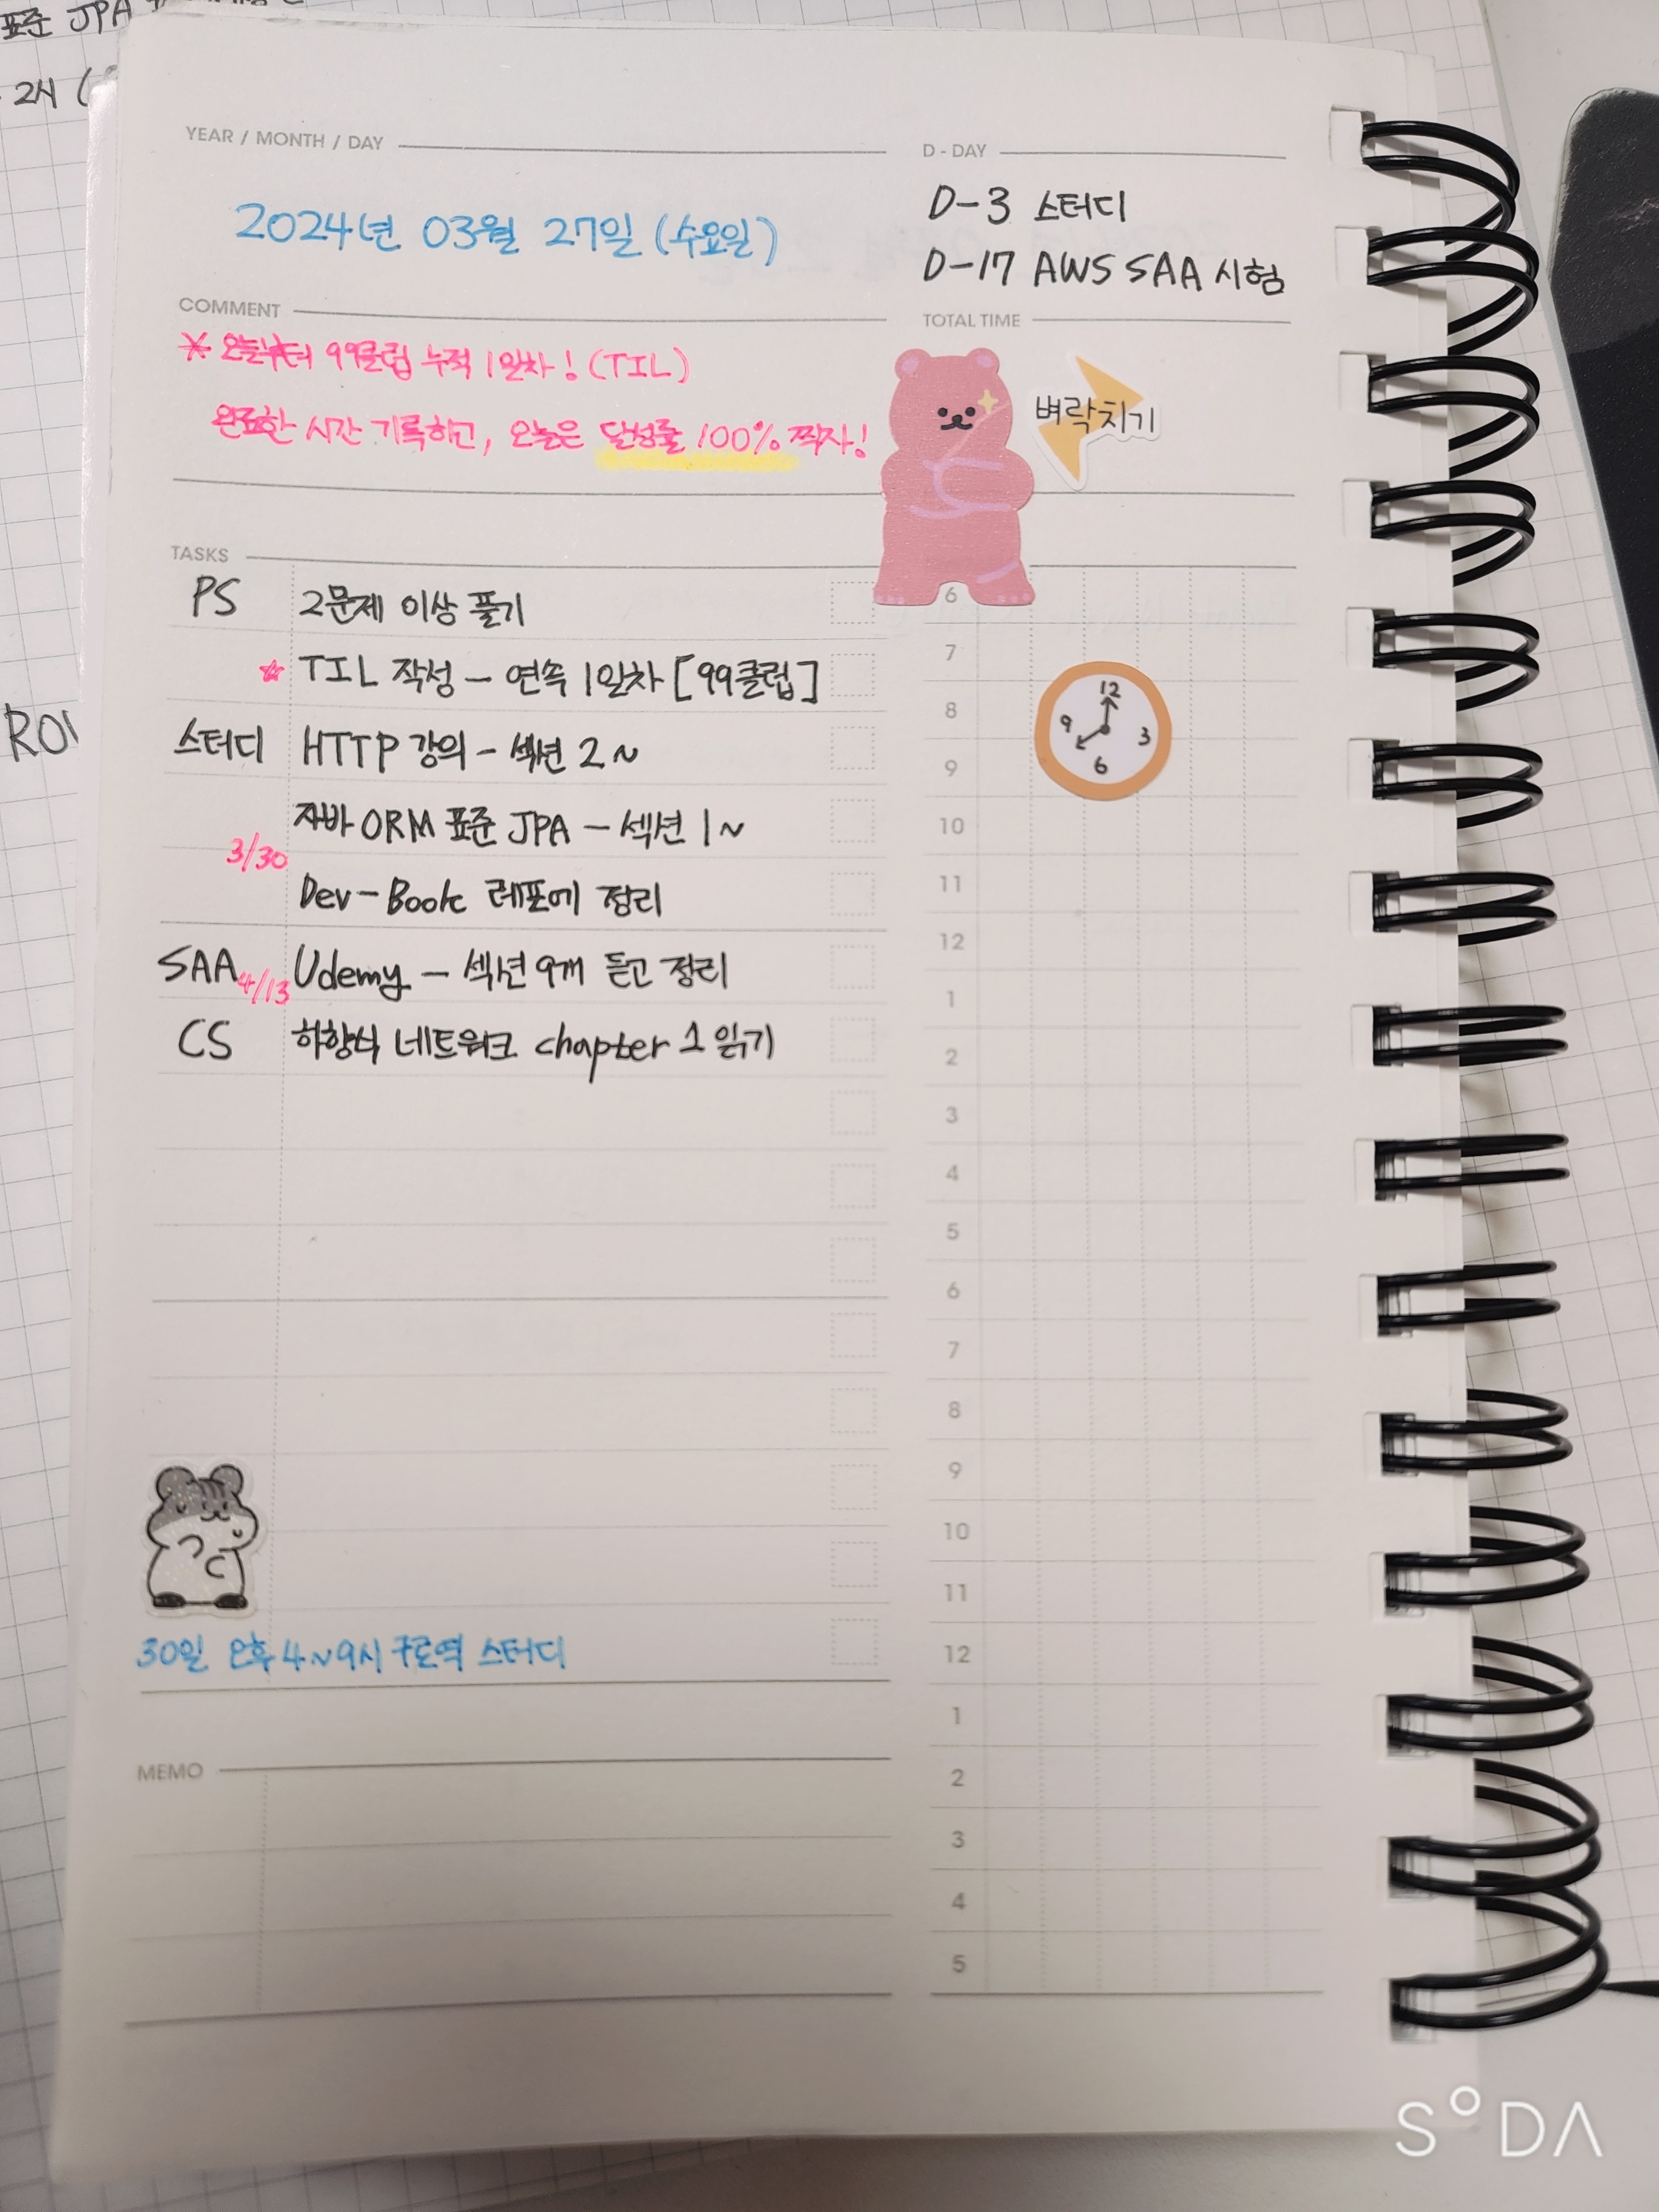 표준 JPA
2시 (
YEAR / MONTH / DAY
2024년 03월 27일 (수요일)
D - DAY
D-3 스터디
D-17 AWS SAA 시험
COMMENT
* 오늘부터 99클럽 누적 1일차! (TIL)
완료한 시간 기록하고, 오늘은 달성률 100% 찍자!
TOTAL TIME
벼락치기
TASKS
PS 2문제 이상 풀기
☆ TIL 작성 - 연속 1일차 [99클럽]
스터디 HTTP 강의 - 섹션 2 ~
자바 ORM 표준 JPA - 섹션 1 ~
3/30
Dev-Book 레포에 정리
SAA 4/13 Udemy - 섹션 9개 듣고 정리
CS 하향식 네트워크 chapter 1 읽기
30일 오후 4~9시 구로역 스터디
MEMO
6
7
8
9
10
11
12
1
2
3
4
5
6
7
8
9
10
11
12
1
2
3
4
5
12
9 3
6
SODA